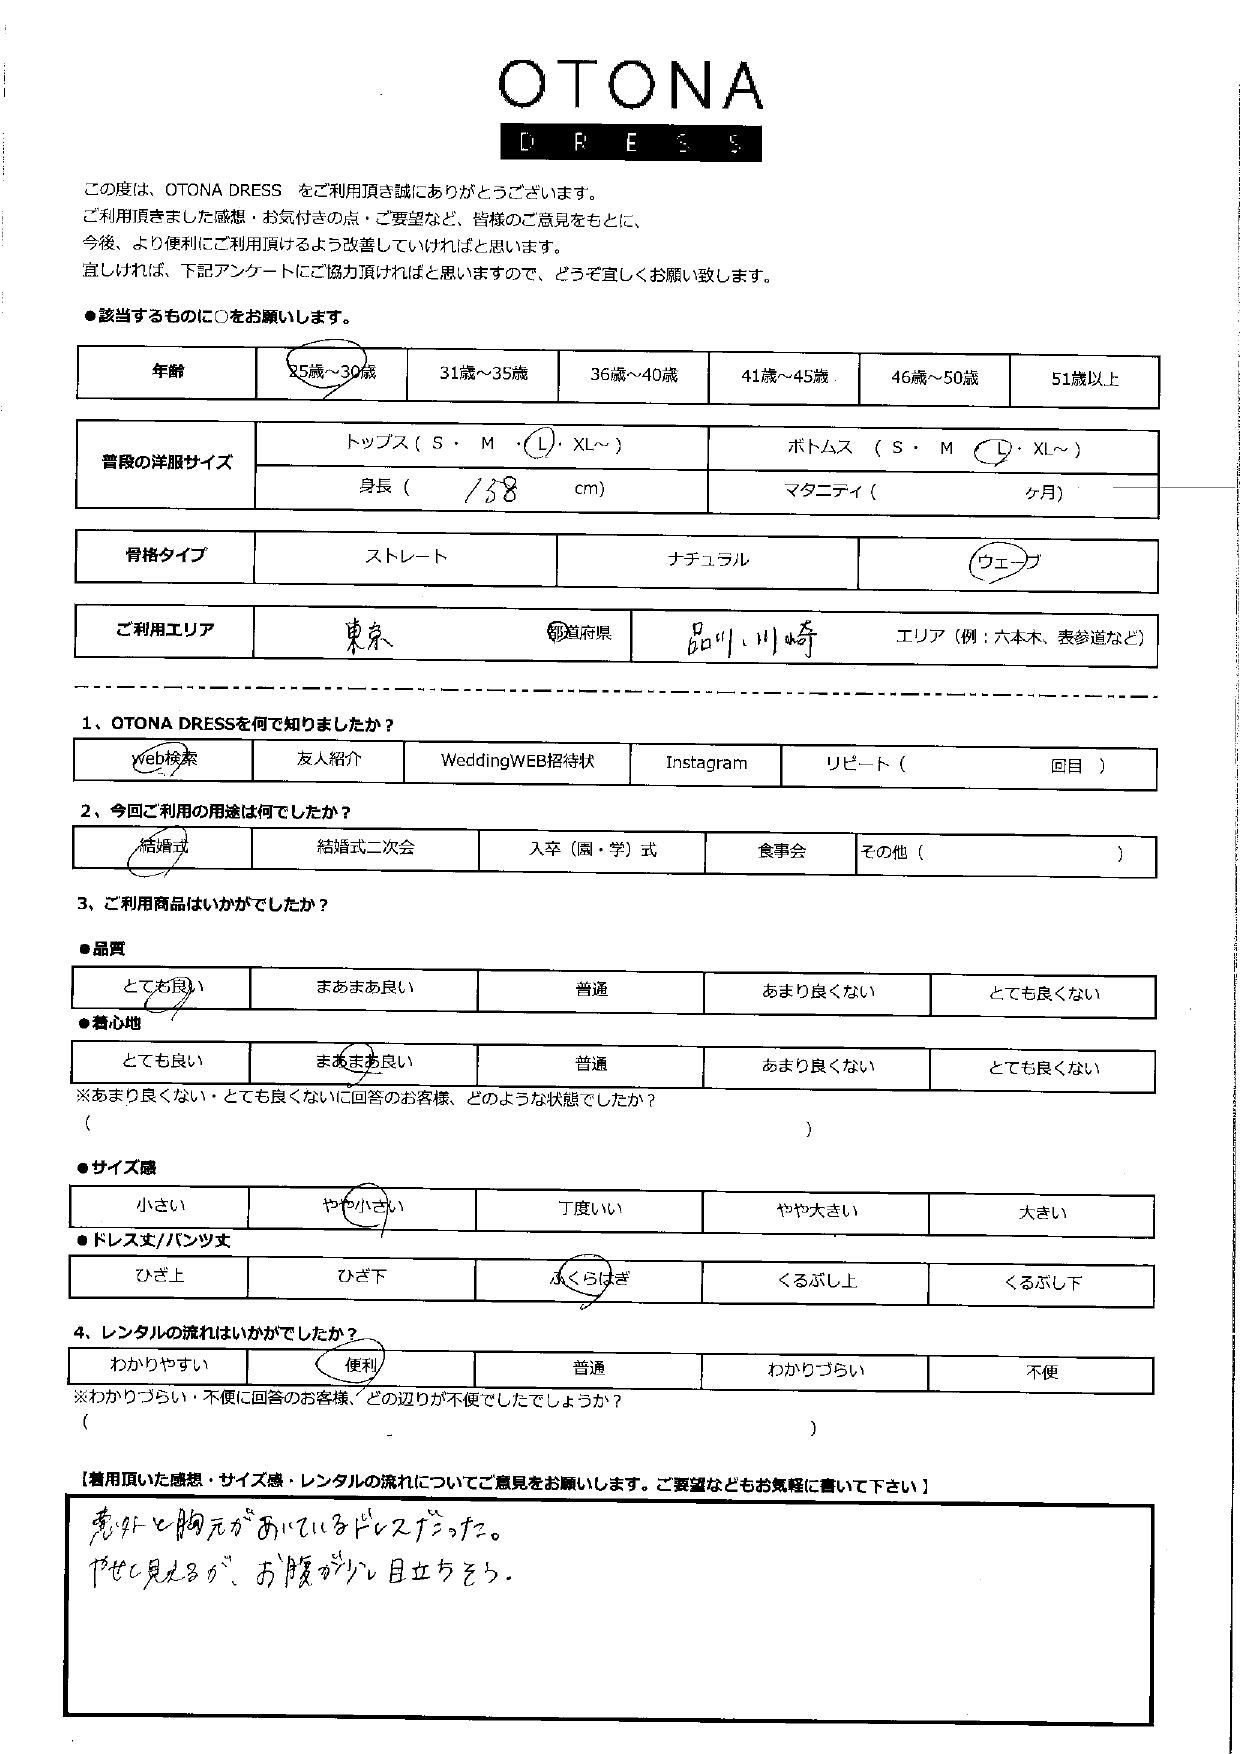 OTONA
DRESS
この度は、OTONA DRESS をご利用頂き誠にありがとうございます。
ご利用頂きました感想・お気付きの点・ご要望など、皆様のご意見をもとに、
今後、より便利にご利用頂けるよう改善していければと思います。
宜しければ、下記アンケートにご協力頂ければと思いますので、どうぞ宜しくお願い致します。
●該当するものに○をお願いします。
年齢 25歳～30歳 31歳～35歳 36歳～40歳 41歳～45歳 46歳～50歳 51歳以上
普段の洋服サイズ トップス ( S ・ M ・ L ・ XL～ ) ボトムス ( S ・ M ・ L ・ XL～ )
身長 ( 158 cm) マタニティ ( ケ月)
骨格タイプ ストレート ナチュラル ウェーブ
ご利用エリア 東京 都道府県 品川、川崎 エリア（例：六本木、表参道など）
1、OTONA DRESSを何で知りましたか？
web検索 友人紹介 WeddingWEB招待状 Instagram リピート ( 回目 )
2、今回ご利用の用途は何でしたか？
結婚式 結婚式二次会 入卒（園・学）式 食事会 その他 ( )
3、ご利用商品はいかがでしたか？
●品質
とても良い まあまあ良い 普通 あまり良くない とても良くない
●着心地
とても良い まあまあ良い 普通 あまり良くない とても良くない
※あまり良くない・とても良くないに回答のお客様、どのような状態でしたか？
( )
●サイズ感
小さい やや小さい 丁度いい やや大きい 大きい
●ドレス丈/パンツ丈
ひざ上 ひざ下 ふくらはぎ くるぶし上 くるぶし下
4、レンタルの流れはいかがでしたか？
わかりやすい 便利 普通 わかりづらい 不便
※わかりづらい・不便に回答のお客様、どの辺りが不便でしたでしょうか？
( )
【着用頂いた感想・サイズ感・レンタルの流れについてご意見をお願いします。ご要望などもお気軽に書いて下さい】
意外と胸元があいているドレスだった。
やせて見えるが、お腹が少し目立ちそう.